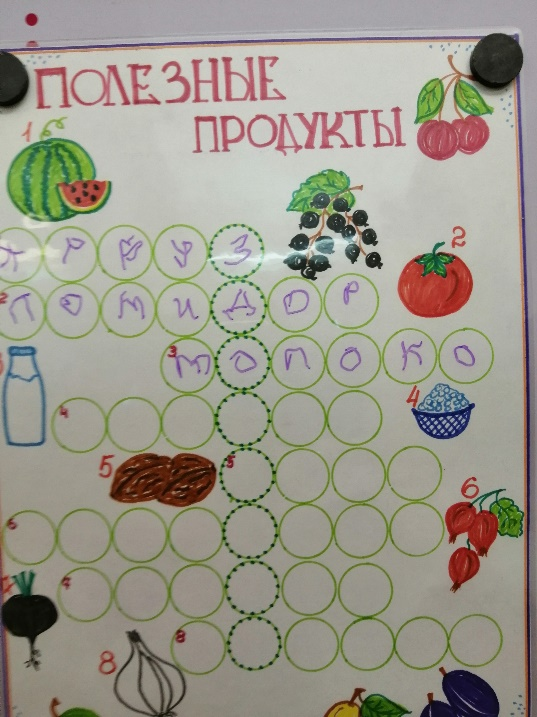 ПОЛЕЗНЫЕ
ПРОДУКТЫ
1
А Р Б У З
2
2 П О М И Д О Р
3 М О Л О К О
4
4
5
5
6
6
7
7
8
8